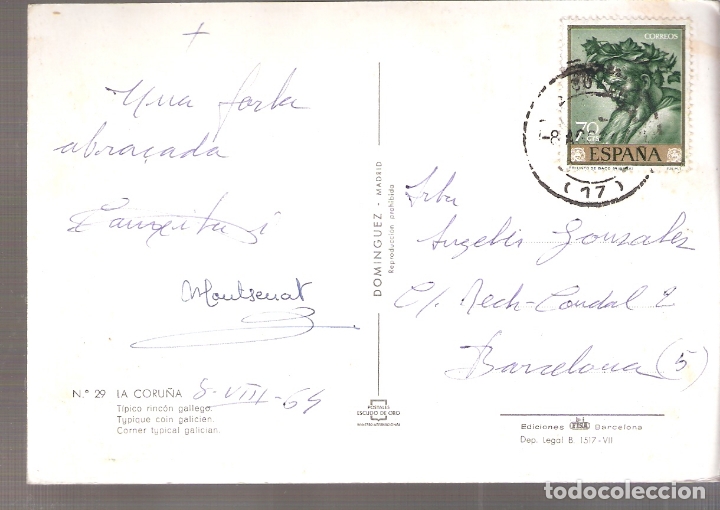 +
Una forta
abraçada
i
Montserrat
N.º 29 LA CORUÑA 8-VIII-64
Típico rincón gallego.
Typique coin galicien.
Corner typical galician.
POSTALES
ESCUDO DE ORO
DOMINGUEZ - MADRID
Reproducción prohibida
CORREOS
70
ESPAÑA
8 AGO
(17)
Srta
Angelis Gonzales
C/. Rech-Condal 2
Barcelona (5)
Ediciones FISA Barcelona
Dep. Legal B. 1517-VII
todocoleccion.net